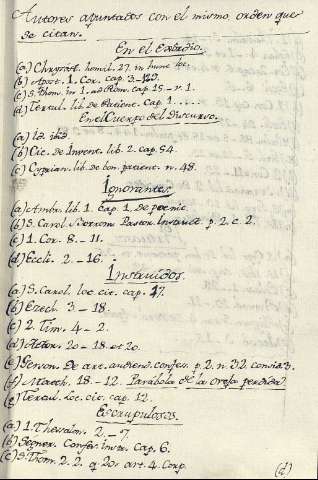 Autores apuntados con el mismo orden que
se citan.
En el Exordio.
(a) Chrysost. homil. 27. in hunc loc.
(b) Apost. 1. Cor. cap. 3
(c) S. Thom. in 1. ad Rom. cap. 15 - v. 1.
(d) Tertul. lib. de Patient. Cap. 1 .....
En el Cuerpo del Discurso.
(a) Id. ibid.
(b) Cic. de Invent. lib. 2. cap. 54.
(c) Cyprian. lib. de bon. patient. n. 48.
Ignorantes
(a) Ambr. lib. 1. Cap. 1. de poenit.
(b) S. Carol. Borrom. Pastor. Instruct. p. 2. c. 2.
(c) 1. Cor. 8 - 11.
(d) Eccli. 2 - 16.
Instruidos.
(a) S. Carol. loc. cit. cap. 17.
(b) Ezech. 3 - 18.
(c) 2. Tim. 4 - 2.
(d) Actor. 20 - 18. et 20.
(e) Gerson. De art. audiend. confess. p. 2. n. 32. consid. 3.
(f) Matth. 18 - 12. Parabola de la oveja perdida.
(g) Tertul. loc. cit. cap. 12.
Escrupulosos.
(a) 1. Thessalon. 2 - 7.
(b) Segner. Confes. instr. Cap. 6.
(c) S. Thom. 2. 2. q. 20. art. 4. Corp.
(d)